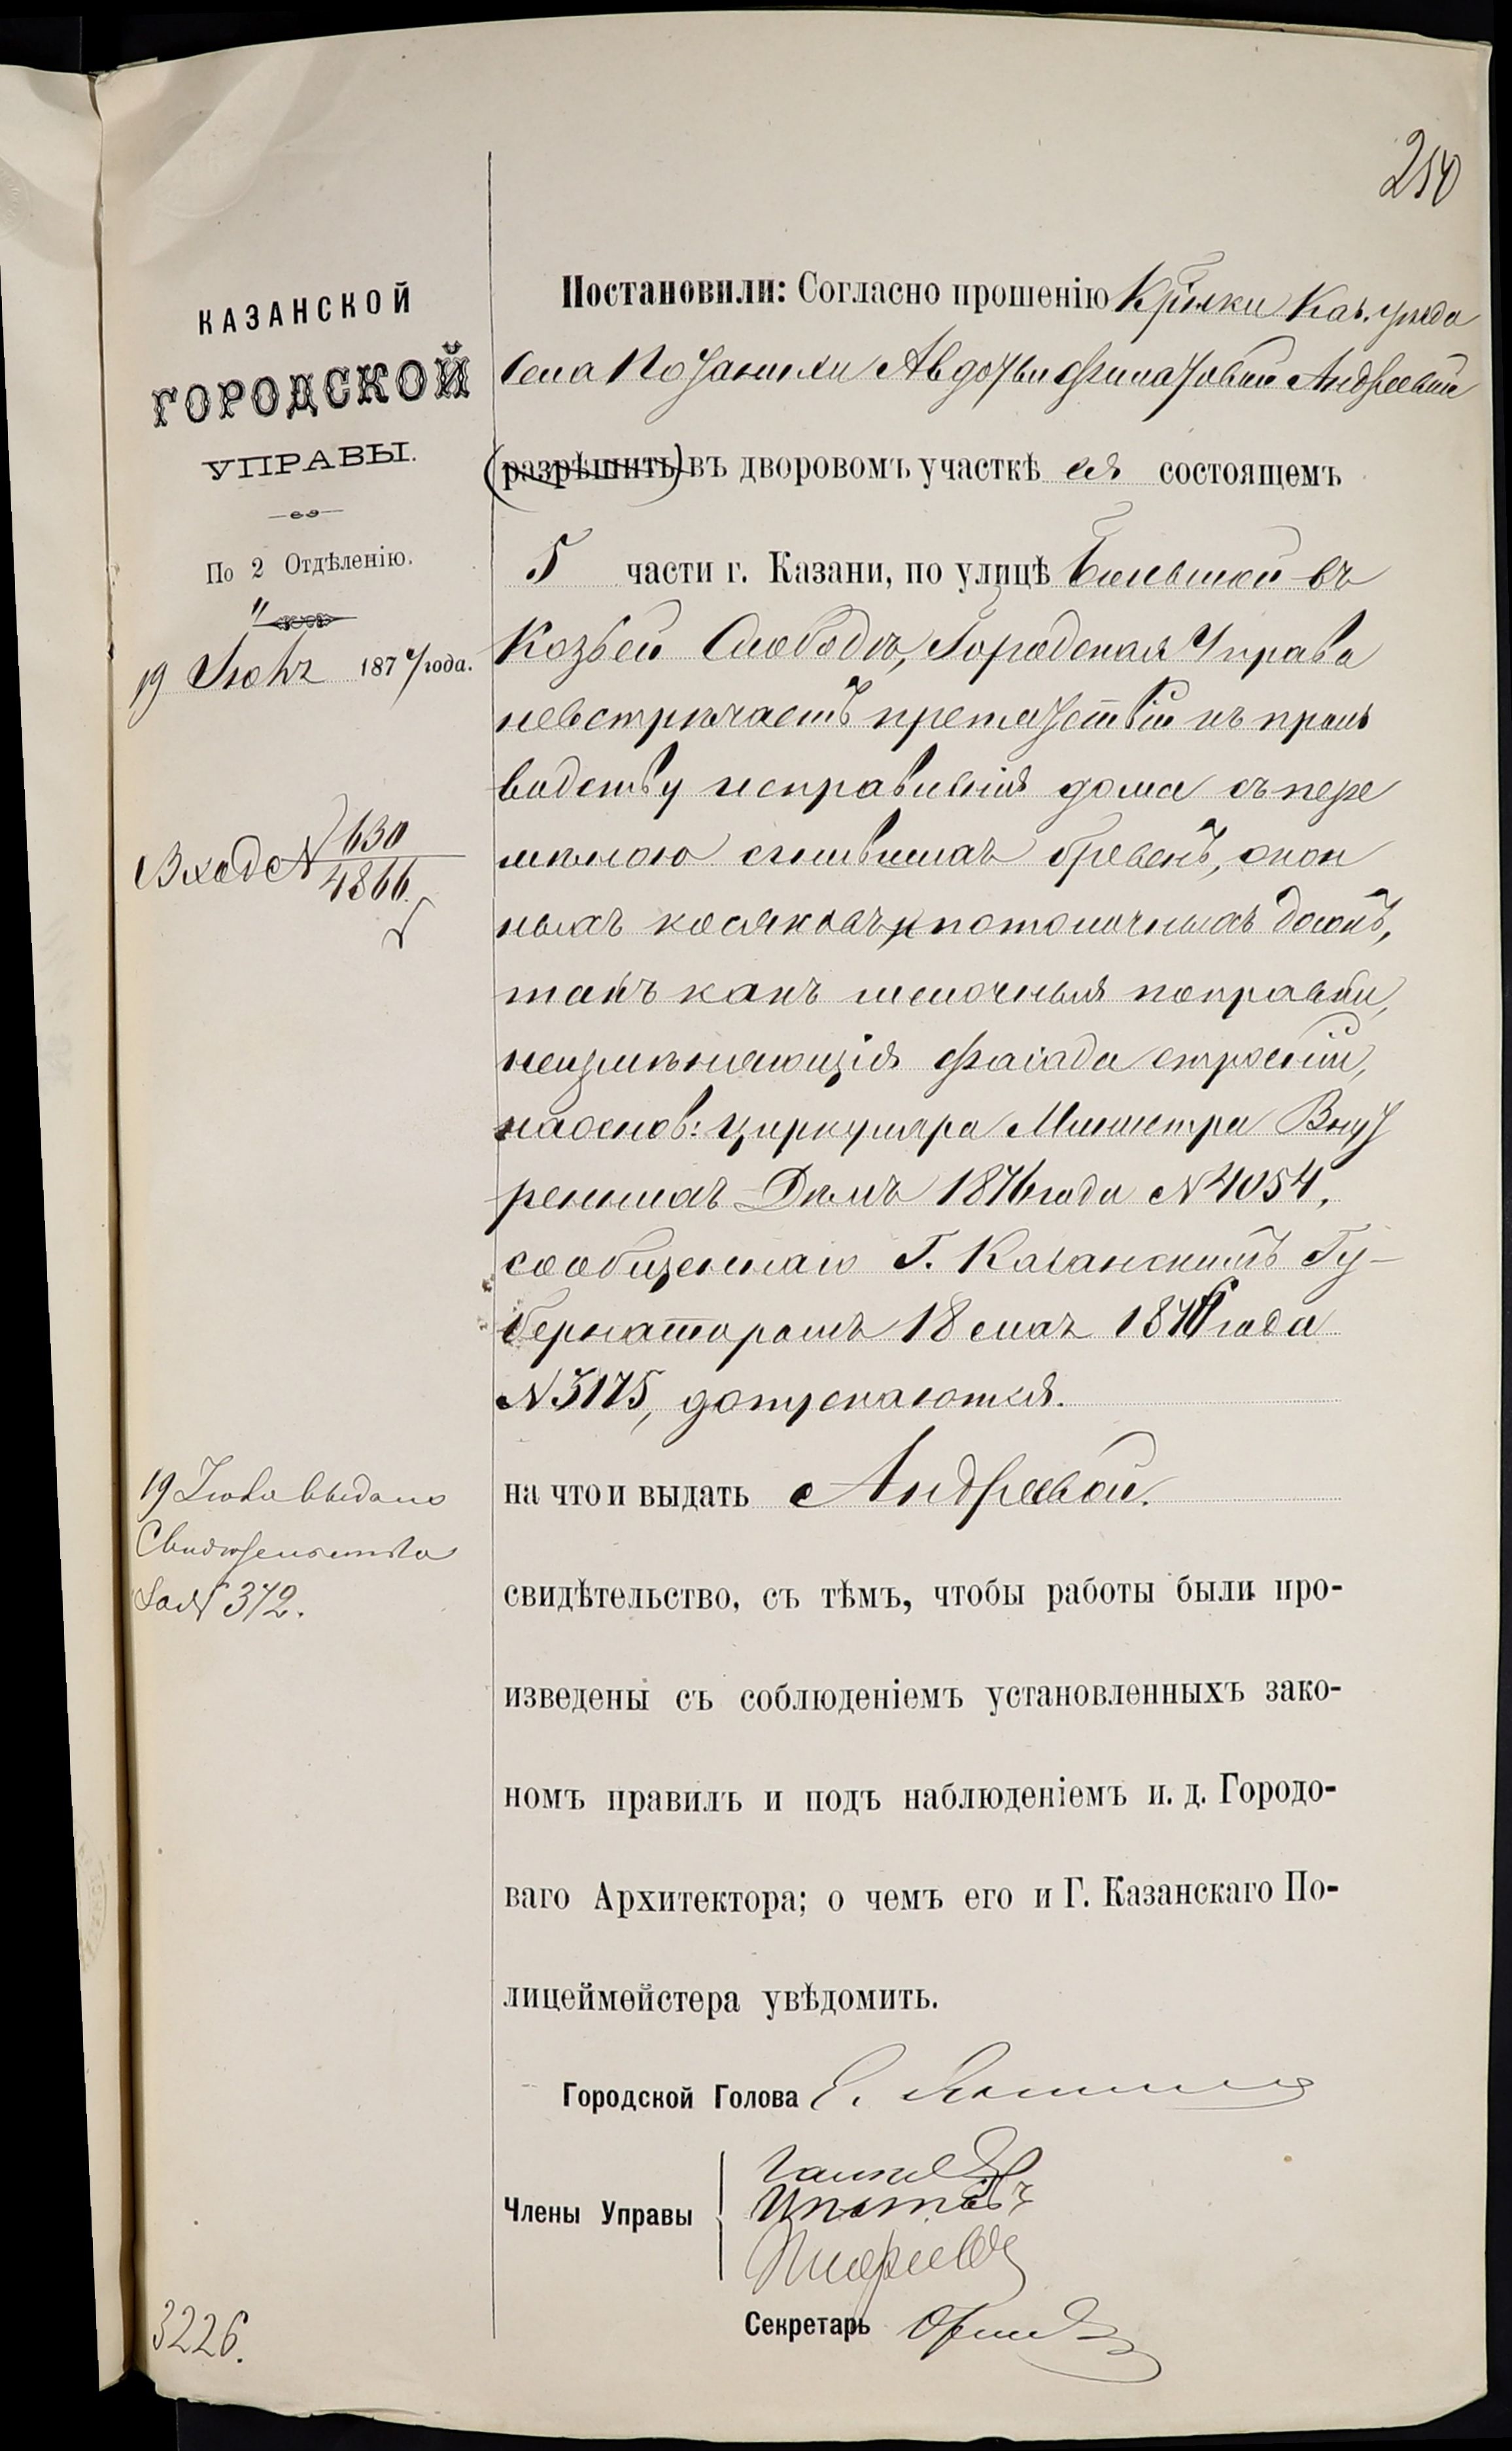 250
КАЗАНСКОЙ
ГОРОДСКОЙ
УПРАВЫ.
По 2 Отдѣленію.
19 Іюня 1877 года.
Вход N 630
4866.
19 Іюня выдано
Свидѣтельство
за N 372.
3226.
Постановили: Согласно прошенію Кр҃нки Каз. уѣзда
села Авдотьи Андреевой
(разрѣшить) въ дворовомъ участкѣ ея состоящемъ
5 части г. Казани, по улицѣ Большой въ
Козьей Слободѣ, Городская Управа
невстрѣчаетъ препятствій къ произ
водству исправленія дома съ пере
мѣною сгнившихъ бревенъ, окон
ныхъ косяковъ и потолочныхъ досокъ,
такъ какъ мелочныя поправки,
неизмѣняющія фасада строеній,
на основ: циркуляра Министра Внут
реннихъ Дѣлъ 1876 года N 4054,
сообщеннаго Г. Казанскимъ Гу-
бернаторомъ 18 мая 1876 года
N 3175, допускаются.
на что и выдать Андреевой.
свидѣтельство, съ тѣмъ, чтобы работы были про-
изведены съ соблюденіемъ установленныхъ зако-
номъ правилъ и подъ наблюденіемъ и. д. Городо-
ваго Архитектора; о чемъ его и Г. Казанскаго По-
лицеймейстера увѣдомить.
Городской Голова
Члены Управы
Ипатовъ
Секретарь